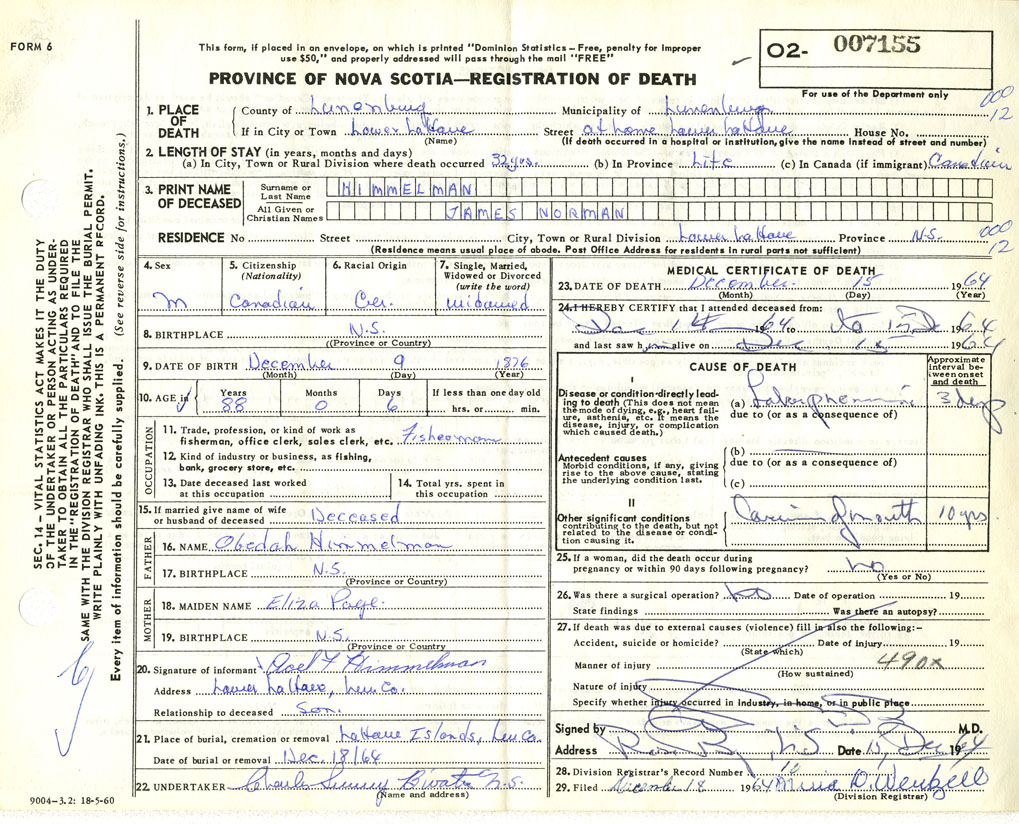 FORM 6
This form, if placed in an envelope, on which is printed "Dominion Statistics – Free, penalty for improper
use $50," and properly addressed will pass through the mail "FREE"
PROVINCE OF NOVA SCOTIA—REGISTRATION OF DEATH
02- 007155
For use of the Department only
000
12
1. PLACE OF DEATH
County of Lunenburg Municipality of Lunenburg
If in City or Town Lower LaHave Street at home Lower LaHave House No.
(Name) (If death occurred in a hospital or institution, give the name instead of street and number)
2. LENGTH OF STAY (in years, months and days)
(a) In City, Town or Rural Division where death occurred 32 yrs. (b) In Province Life (c) In Canada (if immigrant) Canadian
3. PRINT NAME OF DECEASED
Surname or Last Name HIMMELMAN
All Given or Christian Names JAMES NORMAN
RESIDENCE No Street City, Town or Rural Division Lower LaHave Province N.S.
000
12
(Residence means usual place of abode. Post Office Address for residents in rural parts not sufficient)
4. Sex
M
5. Citizenship
(Nationality)
Canadian
6. Racial Origin
Ger.
7. Single, Married,
Widowed or Divorced
(write the word)
widowed
8. BIRTHPLACE N.S.
((Province or Country)
9. DATE OF BIRTH December 9 1876
(Month) (Day) (Year)
10. AGE in
Years Months Days If less than one day old
88 0 6 hrs. or min.
OCCUPATION
11. Trade, profession, or kind of work as
fisherman, office clerk, sales clerk, etc. Fisherman
12. Kind of industry or business, as fishing,
bank, grocery store, etc.
13. Date deceased last worked
at this occupation
14. Total yrs. spent in
this occupation
15. If married give name of wife
or husband of deceased Deceased
FATHER
16. NAME Obediah Himmelman
17. BIRTHPLACE N.S.
(Province or Country)
MOTHER
18. MAIDEN NAME Eliza Page.
19. BIRTHPLACE N.S.
(Province or Country
20. Signature of informant F Himmelman
Address Lower LaHave, Lun Co.
Relationship to deceased Son.
21. Place of burial, cremation or removal LaHave Islands, Lun Co.
Date of burial or removal Dec. 18/64
22. UNDERTAKER Charles N.S.
(Name and address)
9004-3.2: 18-5-60
MEDICAL CERTIFICATE OF DEATH
23. DATE OF DEATH December 15 1964
(Month) (Day) (Year)
24. I HEREBY CERTIFY that I attended deceased from:
Dec 1964 to 1964
and last saw him alive on Dec 15 1964
CAUSE OF DEATH
Approximate
interval be-
tween onset
and death
I
Disease or condition directly lead-
ing to death (This does not mean
the mode of dying, e.g., heart fail-
ure, asthenia, etc. It means the
disease, injury, or complication
which caused death.)
(a) 3 days
due to (or as a consequence of)
Antecedent causes
Morbid conditions, if any, giving
rise to the above cause, stating
the underlying condition last.
(b)
due to (or as a consequence of)
(c)
II
Other significant conditions
contributing to the death, but not
related to the disease or condi-
tion causing it.
mouth 10 yrs
25. If a woman, did the death occur during
pregnancy or within 90 days following pregnancy? No
(Yes or No)
26. Was there a surgical operation? No Date of operation 19
State findings Was there an autopsy?
27. If death was due to external causes (violence) fill in also the following:-
Accident, suicide or homicide? Date of injury 19
(State which)
Manner of injury 490x
(How sustained)
Nature of injury
Specify whether injury occurred in Industry, in home, or in public place
Signed by M.D.
Address N.S Date 15 Dec 1964
28. Division Registrar's Record Number
29. Filed December 18 1964 D. Wentzell
(Division Registrar)
SEC. 14 – VITAL STATISTICS ACT MAKES IT THE DUTY
OF THE UNDERTAKER OR PERSON ACTING AS UNDER-
TAKER TO OBTAIN ALL THE PARTICULARS REQUIRED
IN THE "REGISTRATION OF DEATH" AND TO FILE THE
SAME WITH THE DIVISION REGISTRAR WHO SHALL ISSUE THE BURIAL PERMIT.
WRITE PLAINLY WITH UNFADING INK. THIS IS A PERMANENT RECORD.
Every item of information should be carefully supplied. (See reverse side for instructions.)